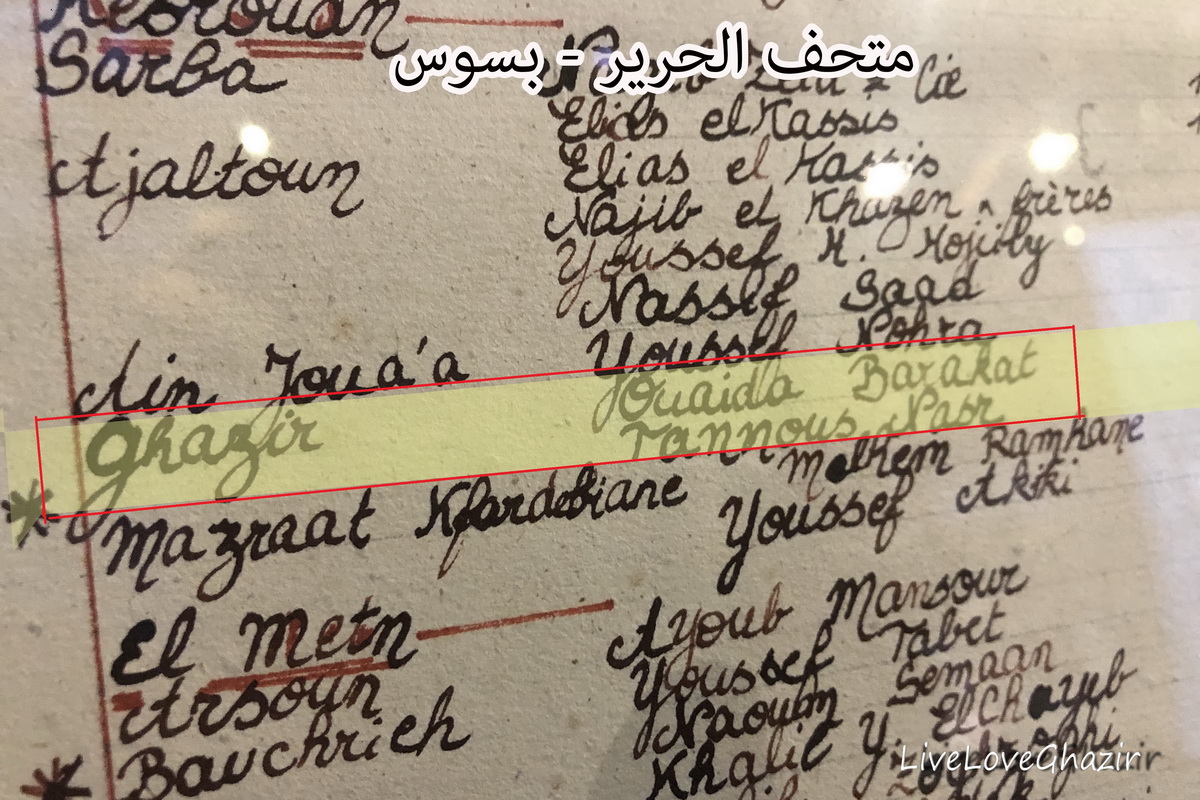 Kesrouan
متحف الحرير - بسوس
Sarba
Cie
Elias el Kassis
Ajaltoun
Elias el Kassis
Najib el Khazen & frères
Youssef H.
Nassif Saad
Ain Joua'a Youssef Nohra
Ghazir Ouaida Barakat
Tannous Nasr
Mazraat Kfardebiane Melhem Ramhane
Youssef Akiki
El Metn
Ayoub Mansour
Arsoun Youssef Tabet
Bauchrieh Naoum Semaan
Khalil Y. El Chayeb
LiveLoveGhazir